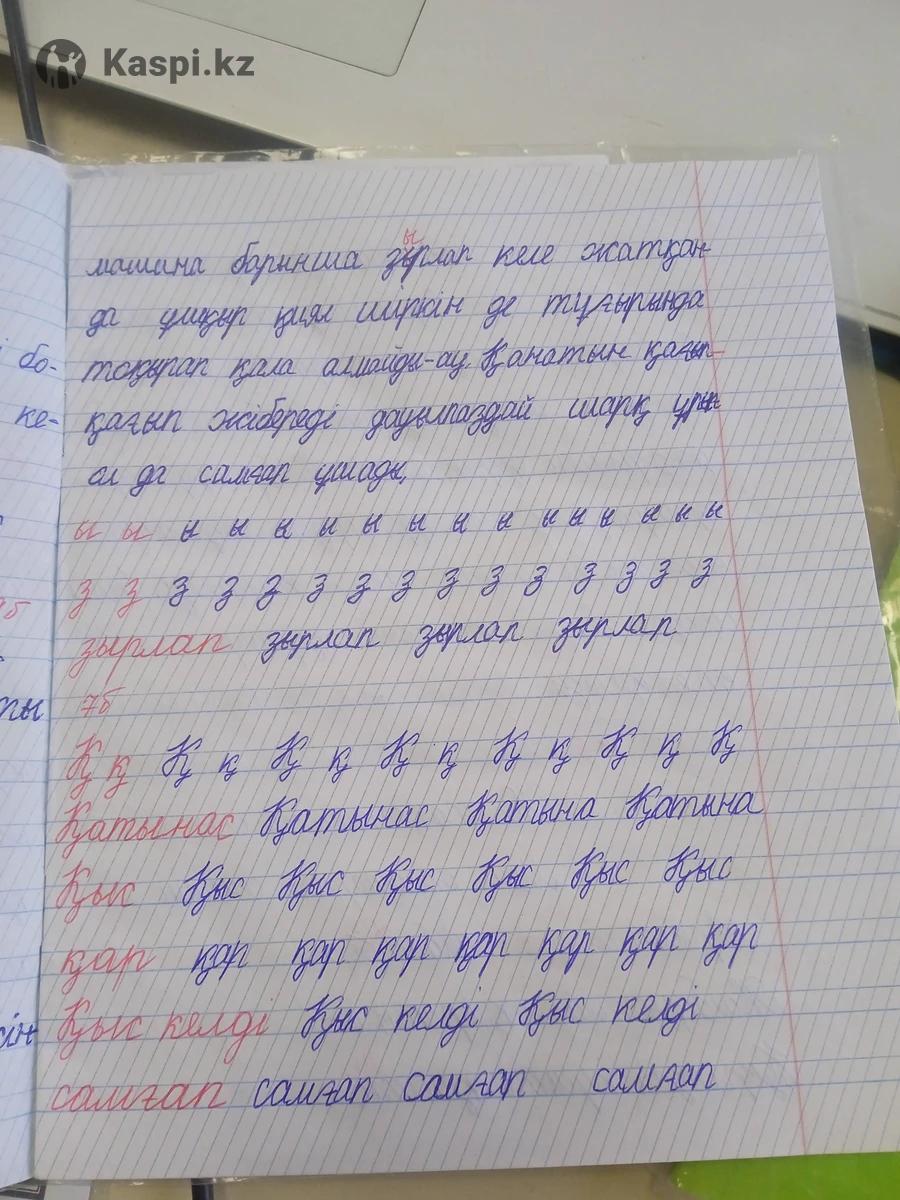 Kaspi.kz
машина барынша зырлап келе жатқан
да ұшқыр қиял шіркін де тұғырында
тоқырап қала алмайды-ау. Қанатын қағып-
қағып жібереді дауылпаздай шарқ ұрып
ал да самғап ұшады.
бо-
ке-
ы ы ы ы ы ы ы ы ы ы ы ы ы ы ы
з з з з з з з з з з з з з з
зырлап зырлап зырлап зырлап
ты
7б
Қ қ Қ қ Қ қ Қ қ Қ қ Қ қ Қ
Қатынас Қатынас Қатына Қатына
Қыс Қыс Қыс Қыс Қыс Қыс Қыс
қар қар қар қар қар қар қар қар
сін
Қыс келді Қыс келді Қыс келді
самғап самғап самғап самғап